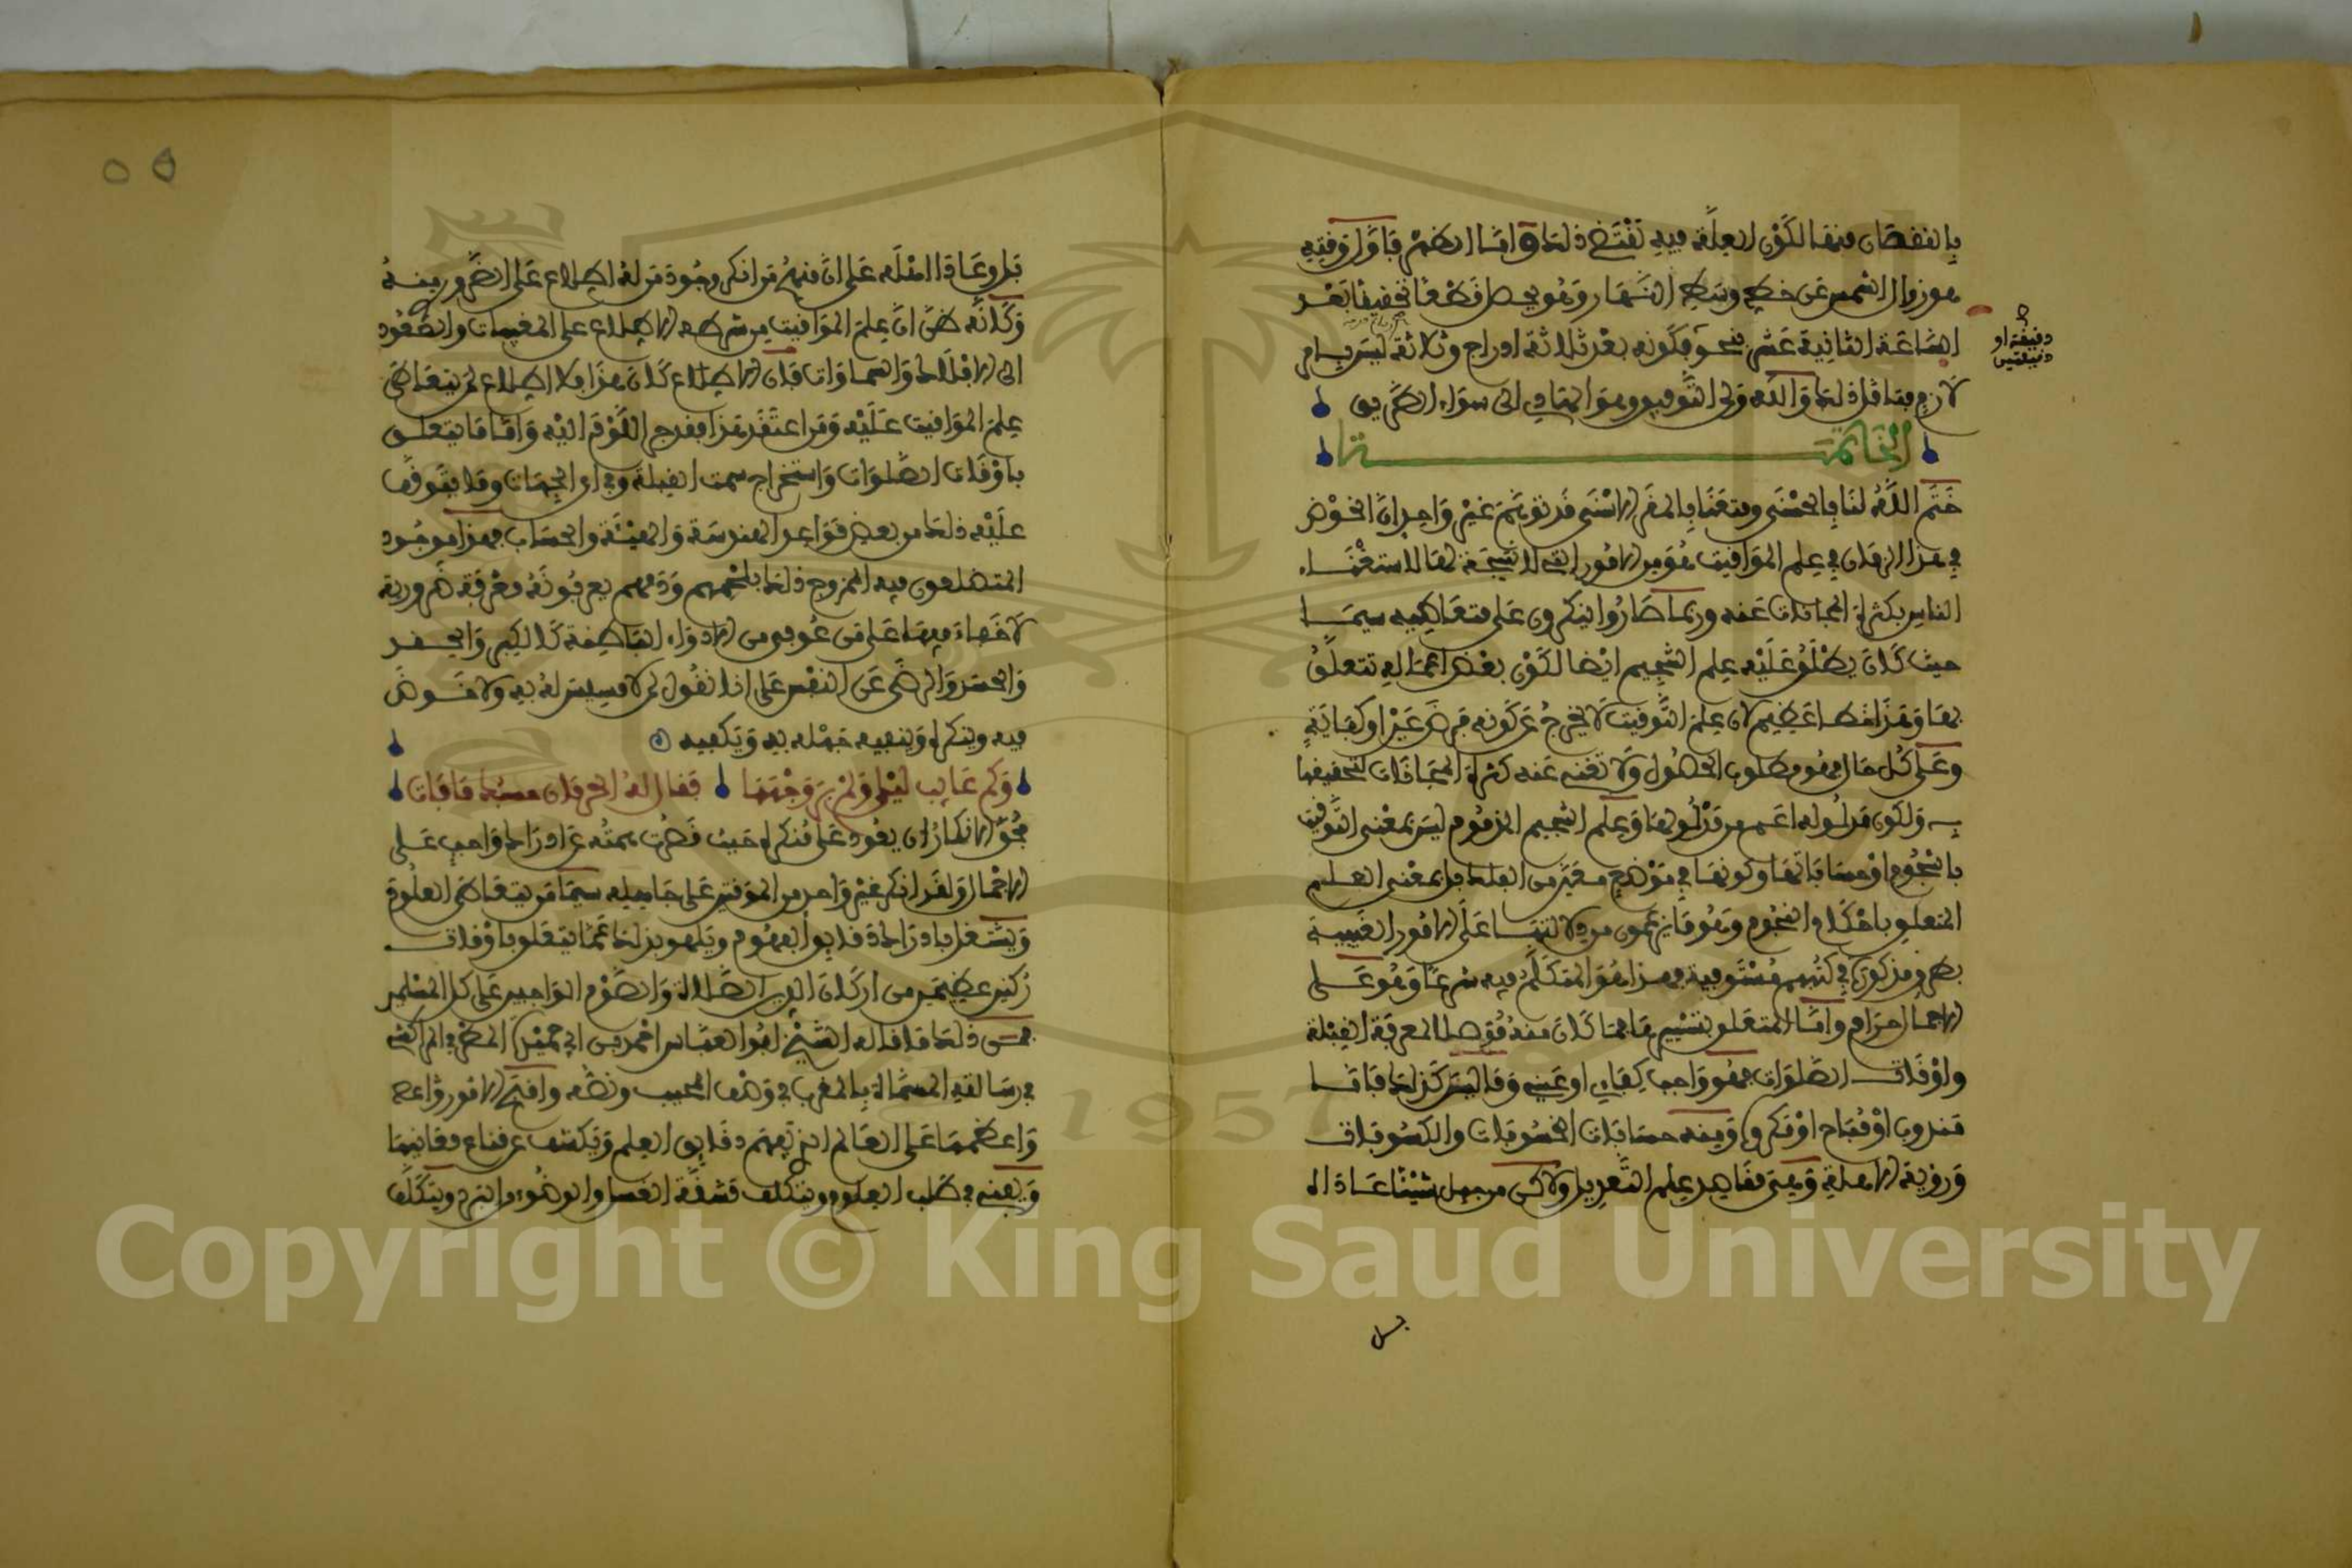 بالنقصان منها لكون العلة فيه تقتضي ذلك وأما الظهر فأول وقته
هو زوال الشمس عن خط وسط النهار وهو يحصل قطعا تحقيقا بعد
الساعة الثانية عشر فكونه بعد ثلاثة ادراج وثلاثة ليس بامر
دقيقة او
دقيقتين
لازم فتأمل ذلك والله ولى التوفيق وهو الهادي الى سواء الطريق
الخاتمة
ختم الله لنا بالحسنى ومتعنا بالمقر الاسنى قد توهم غير واحد ان الخوض
في هذا الزمان في علم المواقيت هو من الامور التي لا نتيجة لها لاستغناء
الناس بكثرة المجانات عنه وربما صاروا ينكرون على متعاطيه سيما
حيث كان يطلق عليه علم التنجيم ايضا لكون بعض اعماله تتعلق
بها وهذا خطا عظيم لان علم التوقيت لا يخرج عن كونه فرض عين او كفاية
وعلى كل حال فهو مطلوب الحصول ولا تغني عنه كثرة المجانات لتحقيقها
به ولكون مدلوله اعم من مدلولها وعلم التنجيم المذموم ليس بمعنى التوقيت
بالنجوم او حسابها وكونها في موضع معين من الفلك بل بمعنى العلم
المتعلق باحكام النجوم وهو ما يزعمون من دلالتها على الامور الغيبية
بطرق مذكورة في كتبهم مستوفية فهذا هو المتكلم فيه شرعا وهو على
الاجمال حرام واما المتعلق بتسييرها فما كان منه موصلا لمعرفة القبلة
واوقات الصلوات فهو واجب كفاية او عينا وما ليس كذلك فاما
مندوب او مباح او مكروه ومنه حسابات الخسوفات والكسوفات
ورؤية الاهلة وهي مقاصد علم التعديل ولاكن من جهل شيئا عاداه
بل
بل وعادا اهله على ان منهم من انكر وجود من له اطلاع على الضروري منه
وكانه ظن ان علم المواقيت من شرطه الاطلاع على المغيبات والصعود
الى الافلاك والسماوات فان الاطلاع كان هذا بلا اطلاع لم يتعاطى
علم المواقيت عليه ومن اعتقد هذا فقد جر اللوم اليه واما ما يتعلق
باوقات الصلوات واستخراج سمت القبلة وباقي الجهات وما يتوقف
عليه ذلك من بعض قواعد الهندسة والهيئة والحساب فهذا موجود
المتضلعون فيه الممزوج ذلك بلحمهم ودمهم يعرفونه معرفة ضرورية
لا خفاء فيها على من عوفي من الادواء الباطنة كالكبر والحقد
والحسد والرضى عن النفس على انا نقول لم لا مسيس له به ولا خوض
فيه وينكره وينفيه جهله به ويكفيه
وكم عايب ليلى ولم ير وجهها فقال له الحرمان حسبك ما فات
فحق الانكار ان يعود على منكره حيث قصرت همته عن ادراك واجب على
الاجمال ولقد انكر غير واحد من الموقتين على جاهله سيما من يتعاطى العلوم
ويشتغل بادراك دقايق الفهوم ويلهو بذلك عما يتعلق باوقات
ركنين عظيمين من اركان الدين الصلاة والصوم الواجبين على كل المسلمين
فمن ذلك ما قاله الشيخ ابو العباس احمد بن ابي حميدة المطرفي المراكشي
في رسالته المسماة بالمغرب في وصف المجيب ونصه واقبح الامور واعج
واعظمها على العالم الذي يفهم دقايق العلم ويكشف عن قناع معانيها
ويفنى في طلب العلوم ويتكلف مشقة الغسل والوضوء والبرد ويتكلف